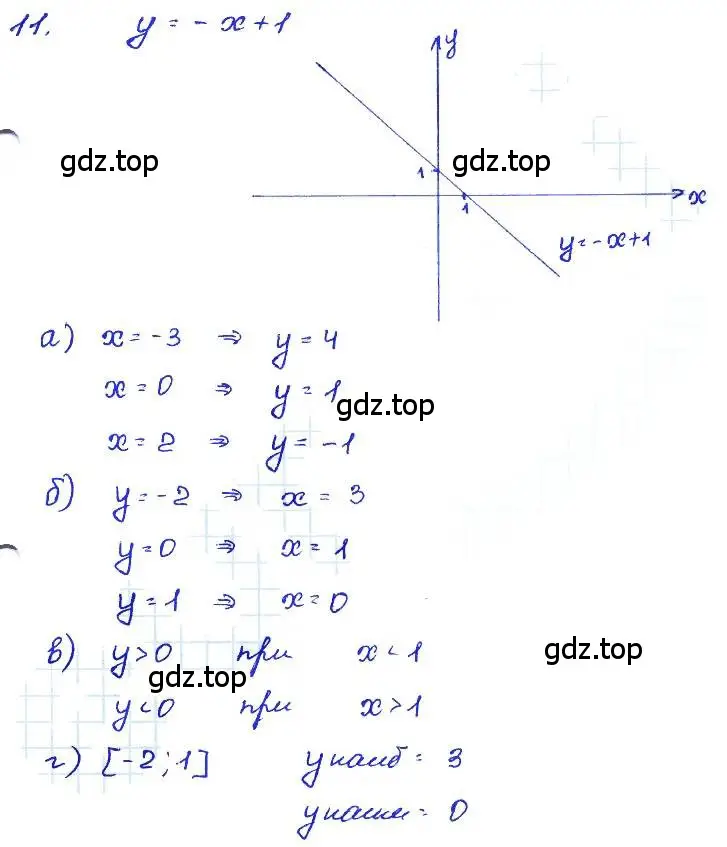 11. y = - x + 1
y
gdz.top
gdz.top
1
1
x
y = - x + 1
а) x = - 3 ⇒ y = 4
x = 0 ⇒ y = 1
gdz.top
x = 2 ⇒ y = - 1
б) y = - 2 ⇒ x = 3
y = 0 ⇒ x = 1
y = 1 ⇒ x = 0
в) y > 0 при x < 1
gdz.top
gdz.top
y < 0 при x > 1
г) [-2; 1] y наиб = 3
y наим = 0